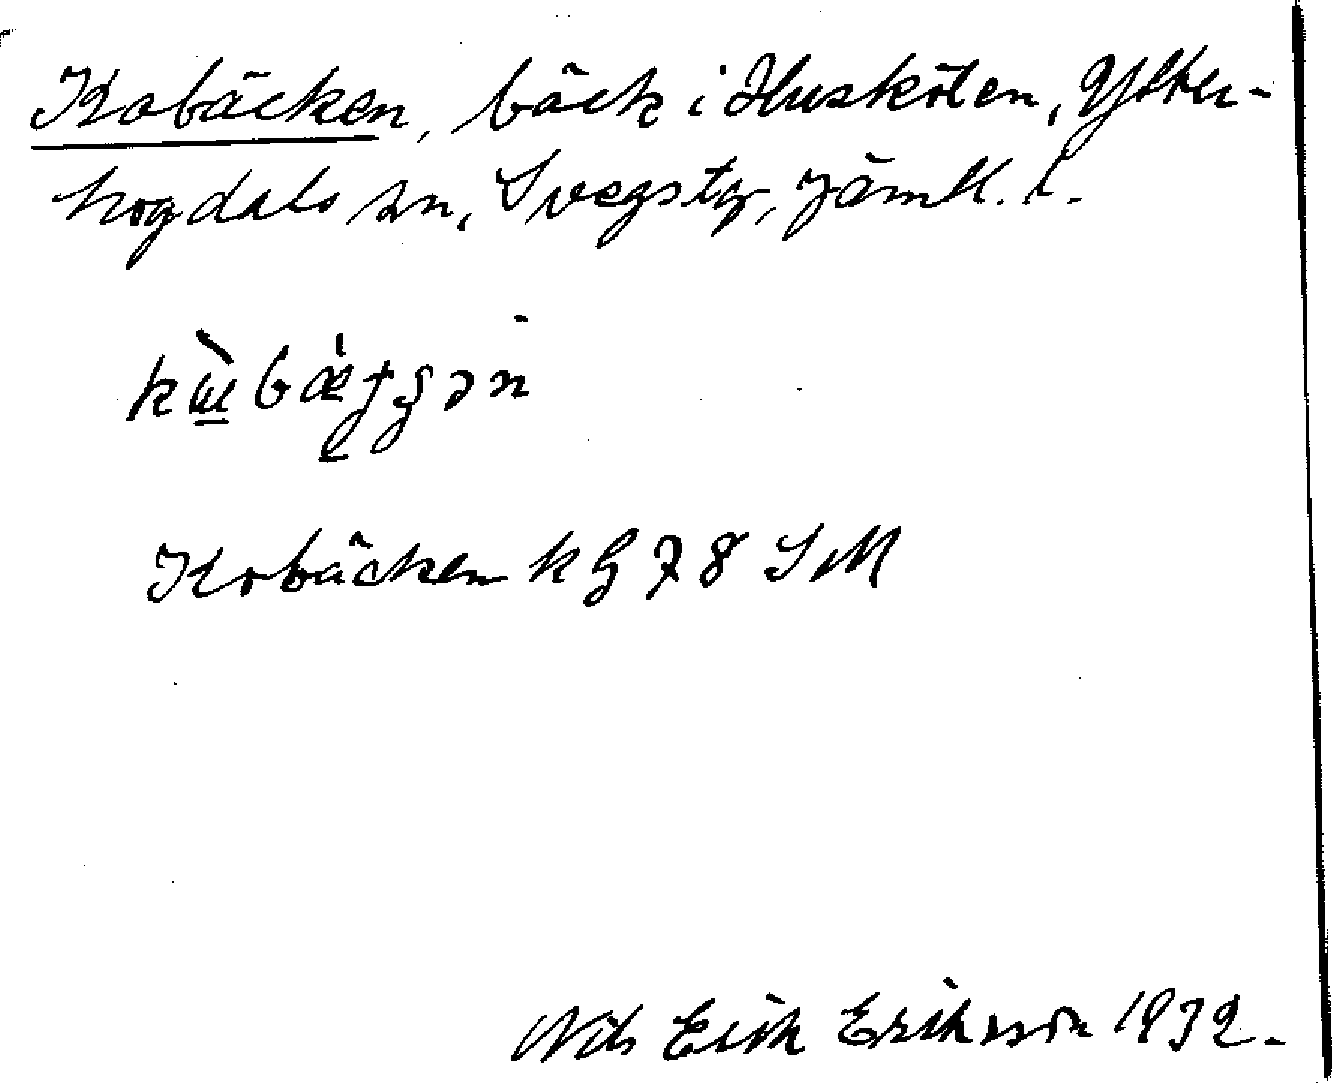 Kobäcken, bäck i Huskölen, Ytter-
hogdals sn, Svegs tg, Jämtl. l.
Kobäcken kg 78 SM
Nils Erik Eriksson 1932.